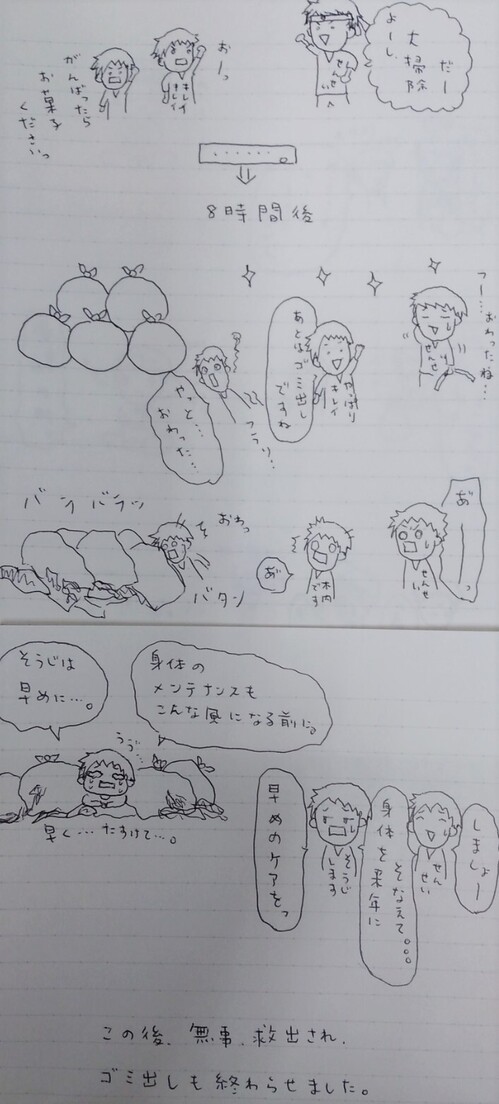 よーし、
大掃除
だー
せんせい
おーっ
キレイ
キレイ
がんばったら
お菓子
くださいっ
・・・・・・。
8時間後
ふー…おわったね…
せんせい
やっぱり
キレイ
あとはゴミ出し
ですね
フラリ…
やっと…
おわった…
あ゛ーっ
せんせい
木内
です
あ゛
おわっ
バタン
バラバラッ
身体の
メンテナンスも
こんな風になる前に。
そうじは
早めに…。
うう゛…
早く…たすけて…。
しましょー
せんせい
身体を来年に
そなえて。。。
そうじ
します
早めのケアをっ
この後、無事、救出され、
ゴミ出しも終わらせました。